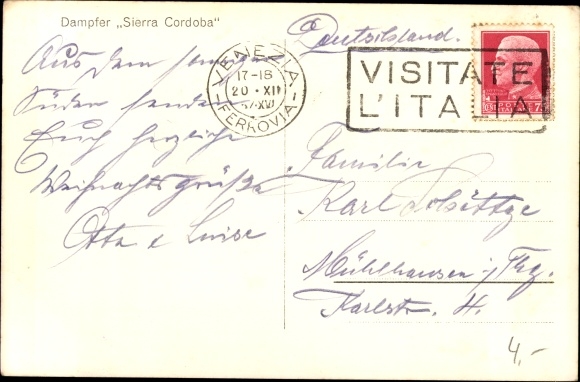 Dampfer „Sierra Cordoba"
Deutschland.
Aus dem sonnigen
Süden senden
Euch herzliche
Weihnachtsgrüße
Otto e Luise
VENEZIA
17-18
20 · XII
37-XVI
FERROVIA
VISITATE
L'ITALIA
Familie
Karl Schöttge
Mühlhausen i/Thg.
Karlstr. 4.
4,-